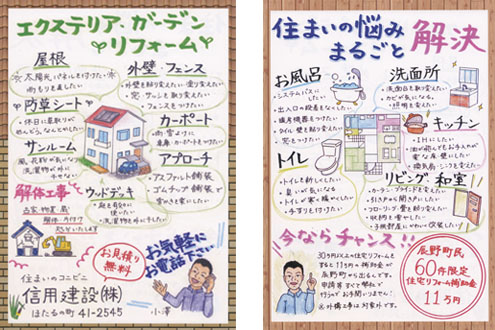 エクステリア、ガーデン
リフォーム
屋根
☆太陽光パネルを付けたい☆
雨もりを直したい
外壁・フェンス
・外壁を貼り替えたい・塗り変えたい
・フェンスをつけたい
防草シート
・休日に草取りが
めんどう、なんとかしたい
カーポート
・雨・雪よけに
倉庫・カーポートをつけたい
サンルーム
・風・花粉が気になる
洗濯物が外に
干せない
アプローチ
・アスファルト舗装
・ゴムチップ舗装で
解体工事
ウッドデッキ
・庭を有効に
使いたい
・洗濯物を外に干したい
お見積り
無料
お気軽に
お電話下さい
住まいのコンビニ
信用建設㈱
ほたるの町 41-2545
小澤
住まいの悩み
まるごと
解決
お風呂
・システムバスに
したい
・出入口の段差をなくしたい
・暖房機器をつけたい
・タイル壁を貼り替えたい
・窓をつけたい
洗面所
・洗面台を取り変えたい
・カビが気になる
・照明を変えたい
キッチン
・IHにしたい
・換気扇・シンクを変えたい
トイレ
・トイレを新しくしたい
・臭いが気になる
・トイレが寒く暖かくしたい
・手すりを付けたい
リビング・和室
・カーテン・ブラインドを変えたい
・引き戸を開き戸にしたい
・フローリング・壁を貼り替えたい
・収納を増やしたい
・子供部屋にかわいい空間にしたい
今ならチャンス!!
30万円以上の住宅リフォームを
すると11万円の補助金が
辰野町から出るんです。
申請等すべて弊社で
行うのでお手間いりません!
※外構工事は対象外です。
辰野町民
60件限定
住宅リフォーム補助金
11万円